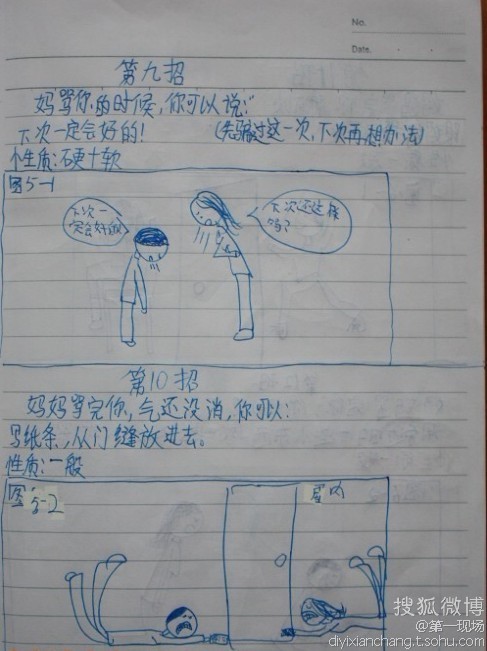 No.
Date.
第九招
妈骂你的时候,你可以说:“
下次一定会好的! (先骗过这一次,下次再想办法)
性质:硬十软
图5-1
下次一
定会好的
下次还这样
吗?
第10招
妈妈骂完你,气还没消,你可以:
写纸条,从门缝放进去。
性质:一般
图5-2
屋内
搜狐微博
@第一现场
diyixianchang.t.sohu.com